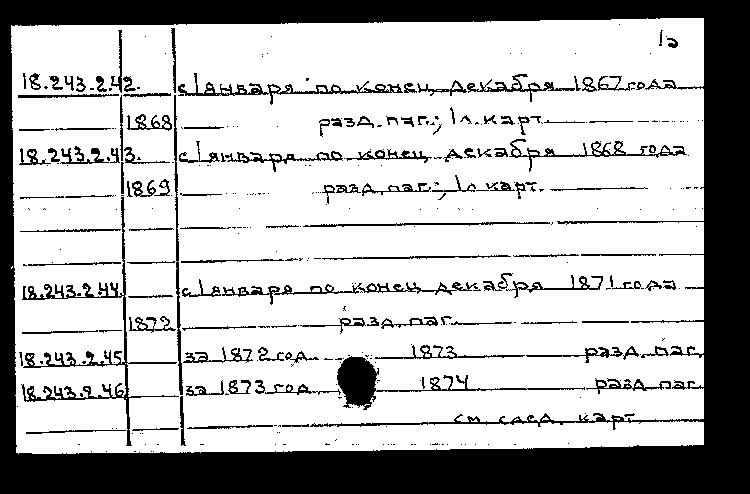 1а
18.243.2.42. с 1 января по конец декабря 1867 года
1868 разд. паг.; 1 л. карт.
18.243.2.43. с 1 января по конец декабря 1868 года
1869 разд. паг.; 1 л карт.
18.243.2.44. с 1 января по конец декабря 1871 года
1872 разд. паг.
18.243.2.45 за 1872 год. 1873 разд. паг.
18.243.2.46 за 1873 год 1874 разд паг
см. след. карт